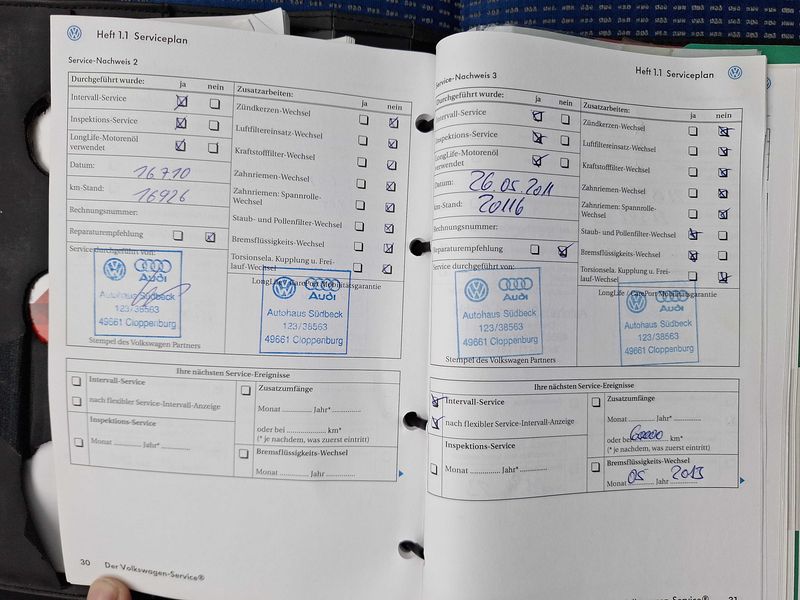 Heft 1.1 Serviceplan
Service-Nachweis 2
Durchgeführt wurde: ja nein
Intervall-Service
Inspektions-Service
LongLife-Motorenöl
verwendet
Datum: 16710
km-Stand: 16926
Rechnungsnummer:
Reparaturempfehlung
Service durchgeführt von:
Audi
Autohaus Südbeck
123/38563
49661 Cloppenburg
Stempel des Volkswagen Partners
Zusatzarbeiten: ja nein
Zündkerzen-Wechsel
Luftfiltereinsatz-Wechsel
Kraftstofffilter-Wechsel
Zahnriemen-Wechsel
Zahnriemen: Spannrolle-
Wechsel
Staub- und Pollenfilter-Wechsel
Bremsflüssigkeits-Wechsel
Torsionsela. Kupplung u. Frei-
lauf-Wechsel
LongLife / CarePort Mobilitätsgarantie
Audi
Autohaus Südbeck
123/38563
49661 Cloppenburg
Ihre nächsten Service-Ereignisse
Intervall-Service
nach flexibler Service-Intervall-Anzeige
Inspektions-Service
Monat ............ Jahr* ............
Zusatzumfänge
Monat ............ Jahr* ............
oder bei ............ km*
(* je nachdem, was zuerst eintritt)
Bremsflüssigkeits-Wechsel
Monat ............ Jahr ............
30 Der Volkswagen-Service®
Heft 1.1 Serviceplan
Service-Nachweis 3
Durchgeführt wurde: ja nein
Intervall-Service
Inspektions-Service
LongLife-Motorenöl
verwendet
Datum: 26.05.2011
km-Stand: 20116
Rechnungsnummer:
Reparaturempfehlung
Service durchgeführt von:
Audi
Autohaus Südbeck
123/38563
49661 Cloppenburg
Stempel des Volkswagen Partners
Zusatzarbeiten: ja nein
Zündkerzen-Wechsel
Luftfiltereinsatz-Wechsel
Kraftstofffilter-Wechsel
Zahnriemen-Wechsel
Zahnriemen: Spannrolle-
Wechsel
Staub- und Pollenfilter-Wechsel
Bremsflüssigkeits-Wechsel
Torsionsela. Kupplung u. Frei-
lauf-Wechsel
LongLife / CarePort Mobilitätsgarantie
Audi
Autohaus Südbeck
123/38563
49661 Cloppenburg
Ihre nächsten Service-Ereignisse
Intervall-Service
nach flexibler Service-Intervall-Anzeige
Inspektions-Service
Monat ............ Jahr* ............
Zusatzumfänge
Monat ............ Jahr* ............
oder bei 60000 km*
(* je nachdem, was zuerst eintritt)
Bremsflüssigkeits-Wechsel
Monat 05 Jahr 2013
31